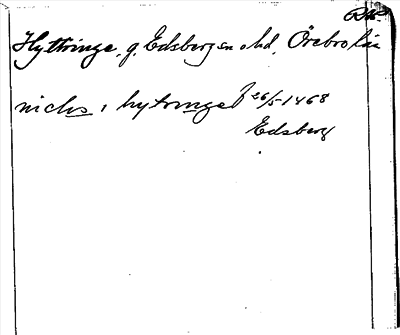 Hyttringe, g. Edsberg sn o hd, Örebro län
nichs i hytringe 26/5 1468
Edsberg